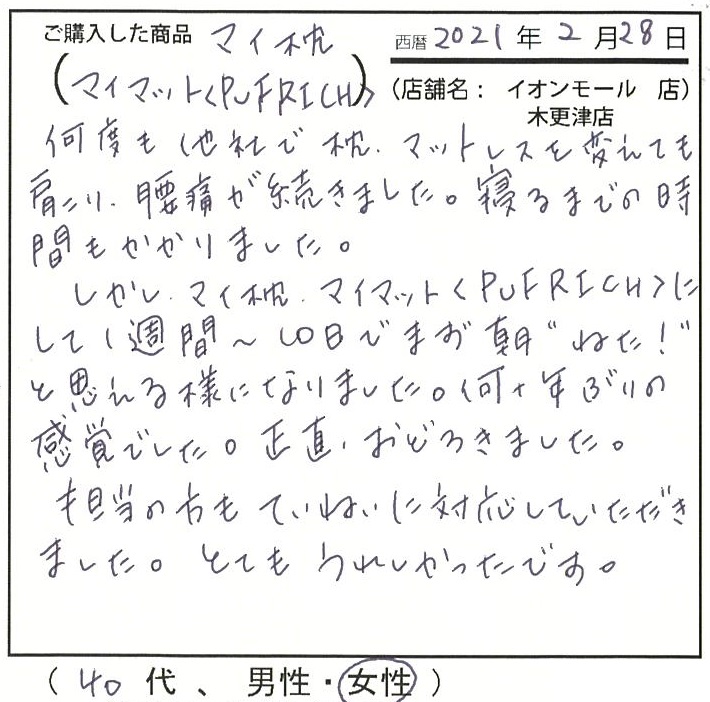 ご購入した商品 マイ枕 西暦 2021 年 2 月 28 日
(マイマット<PUFRICH>) (店舗名： イオンモール 店)
木更津店
何度も他社で枕、マットレスを変えても
肩こり、腰痛が続きました。寝るまでの時
間もかかりました。
しかし、マイ枕、マイマット<PUFRICH>に
して1週間～10日でまず朝"ねた！"
と思える様になりました。何十年ぶりの
感覚でした。正直、おどろきました。
担当の方もていねいに対応していただき
ました。とてもうれしかったです。
( 40 代 、 男性・女性 )